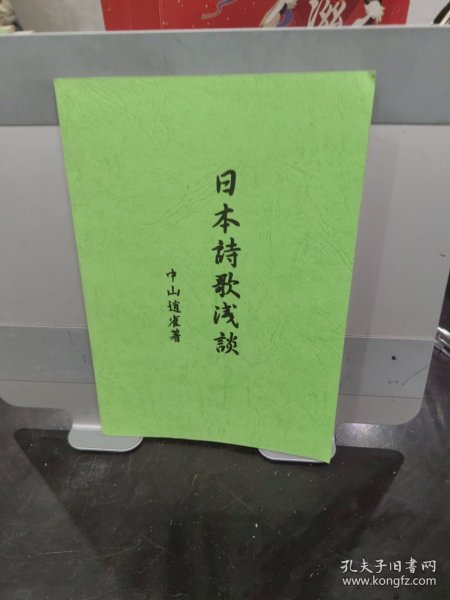 日本詩歌浅談
中山逍雀著
孔夫子旧书网
www.kongfz.com